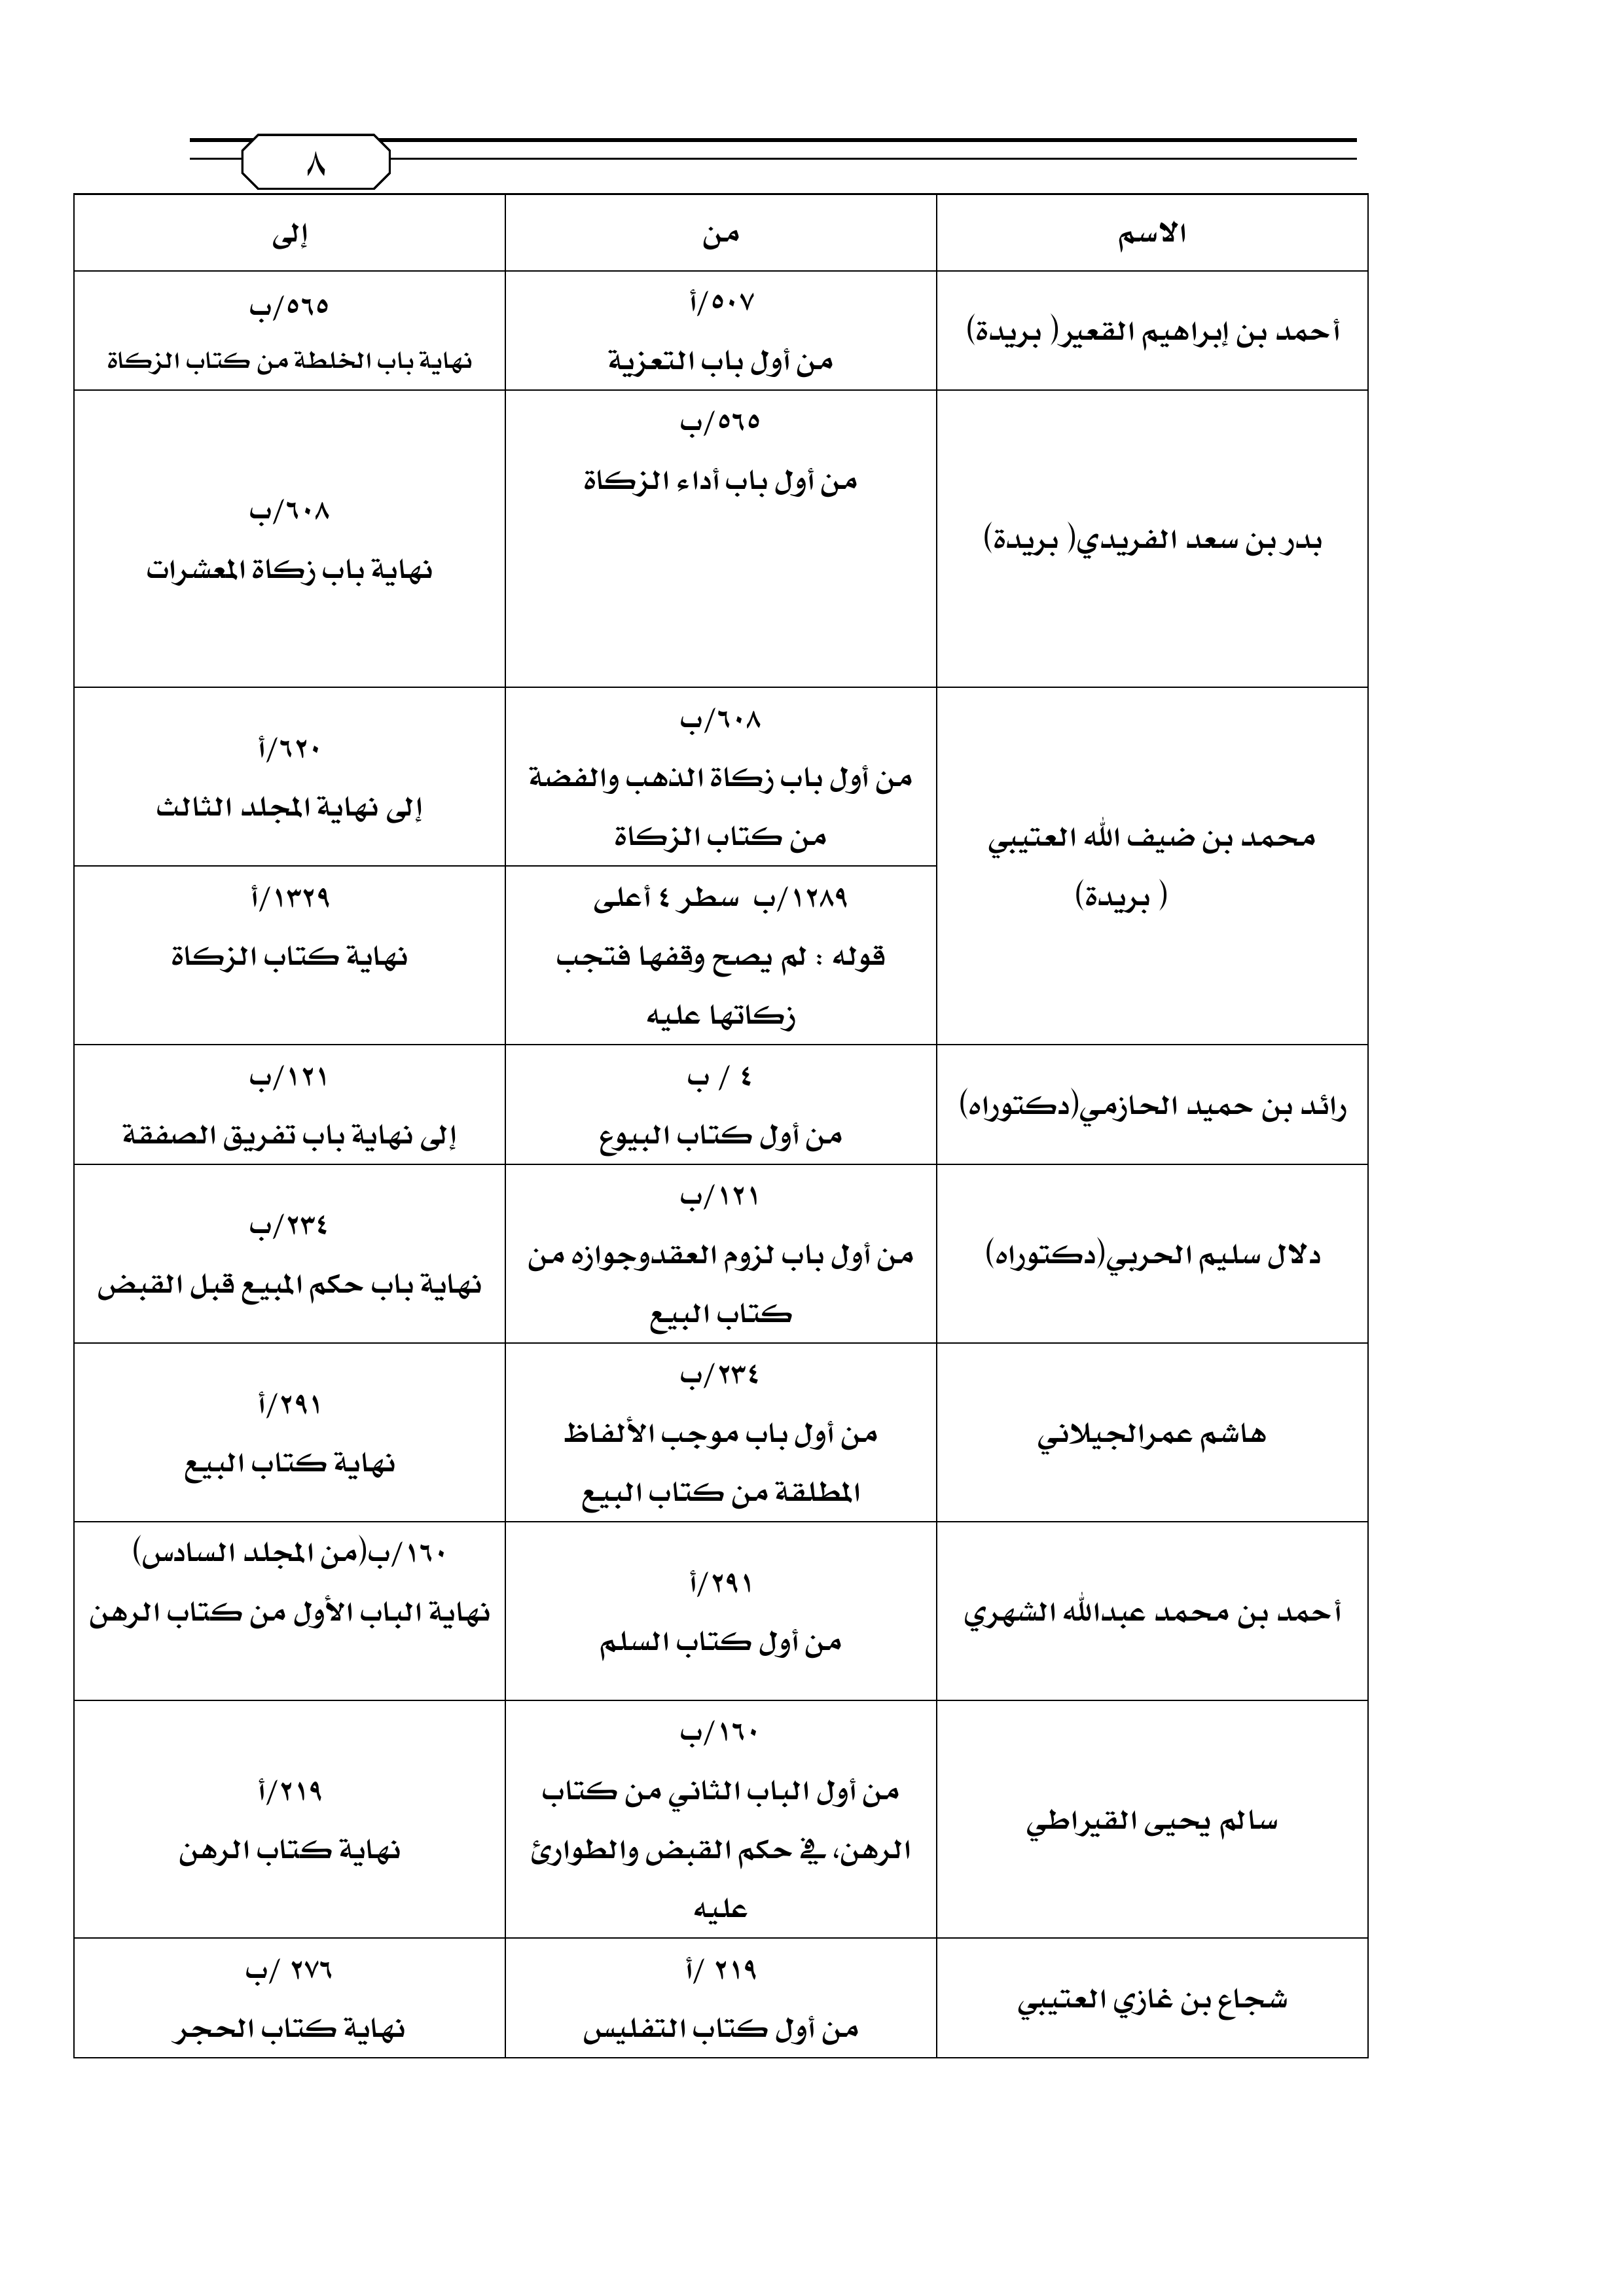 ٨
الاسم
من
إلى
أحمد بن إبراهيم القعير( بريدة)
٥٠٧/أ
من أول باب التعزية
٥٦٥/ب
نهاية باب الخلطة من كتاب الزكاة
بدر بن سعد الفريدي( بريدة)
٥٦٥/ب
من أول باب أداء الزكاة
٦٠٨/ب
نهاية باب زكاة المعشرات
محمد بن ضيف الله العتيبي
( بريدة)
٦٠٨/ب
من أول باب زكاة الذهب والفضة
من كتاب الزكاة
٦٢٠/أ
إلى نهاية المجلد الثالث
١٢٨٩/ب سطر ٤ أعلى
قوله : لم يصح وقفها فتجب
زكاتها عليه
١٣٢٩/أ
نهاية كتاب الزكاة
رائد بن حميد الحازمي(دكتوراه)
٤ / ب
من أول كتاب البيوع
١٢١/ب
إلى نهاية باب تفريق الصفقة
دلال سليم الحربي(دكتوراه)
١٢١/ب
من أول باب لزوم العقدوجوازه من
كتاب البيع
٢٣٤/ب
نهاية باب حكم المبيع قبل القبض
هاشم عمرالجيلاني
٢٣٤/ب
من أول باب موجب الألفاظ
المطلقة من كتاب البيع
٢٩١/أ
نهاية كتاب البيع
أحمد بن محمد عبدالله الشهري
٢٩١/أ
من أول كتاب السلم
١٦٠/ب(من المجلد السادس)
نهاية الباب الأول من كتاب الرهن
سالم يحيى القيراطي
١٦٠/ب
من أول الباب الثاني من كتاب
الرهن، في حكم القبض والطوارئ
عليه
٢١٩/أ
نهاية كتاب الرهن
شجاع بن غازي العتيبي
٢١٩ /أ
من أول كتاب التفليس
٢٧٦ /ب
نهاية كتاب الحجر